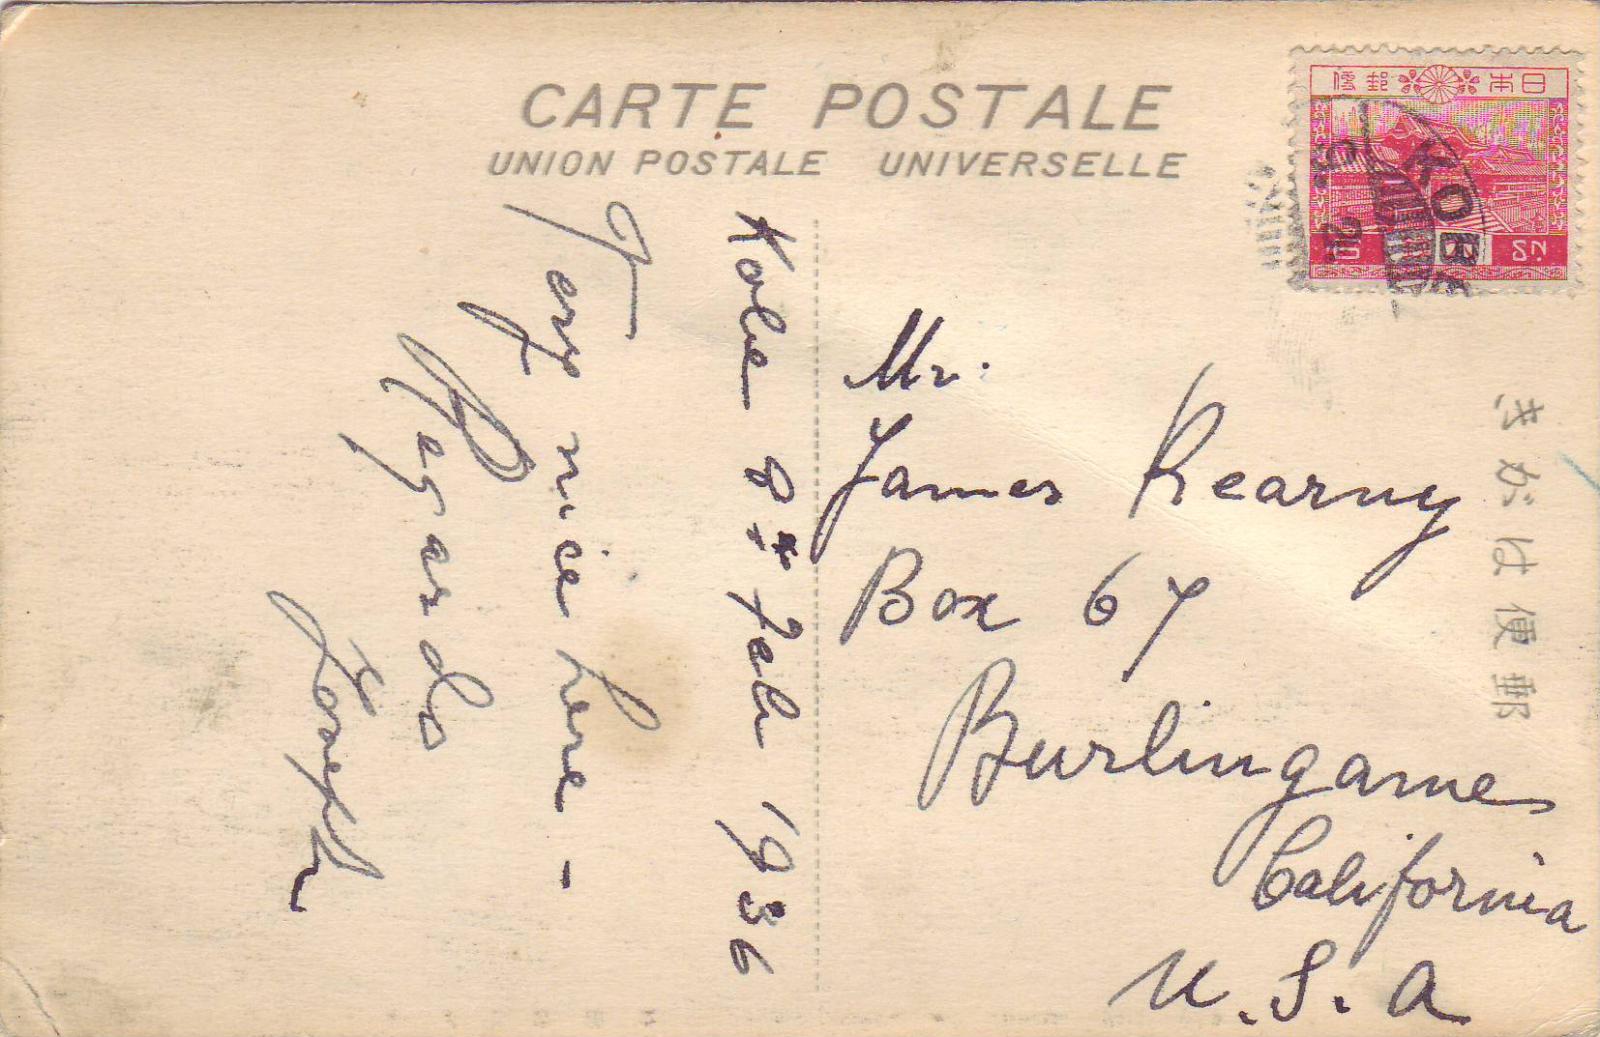 CARTE POSTALE
UNION POSTALE UNIVERSELLE
便郵 本日
KOBE
銭 SN
きがは便郵
Kobe 8th Feb 1936
Very nice here -
Regards
Joseph
Mr.
James Kearny
Box 67
Burlingame
California
U.S.A